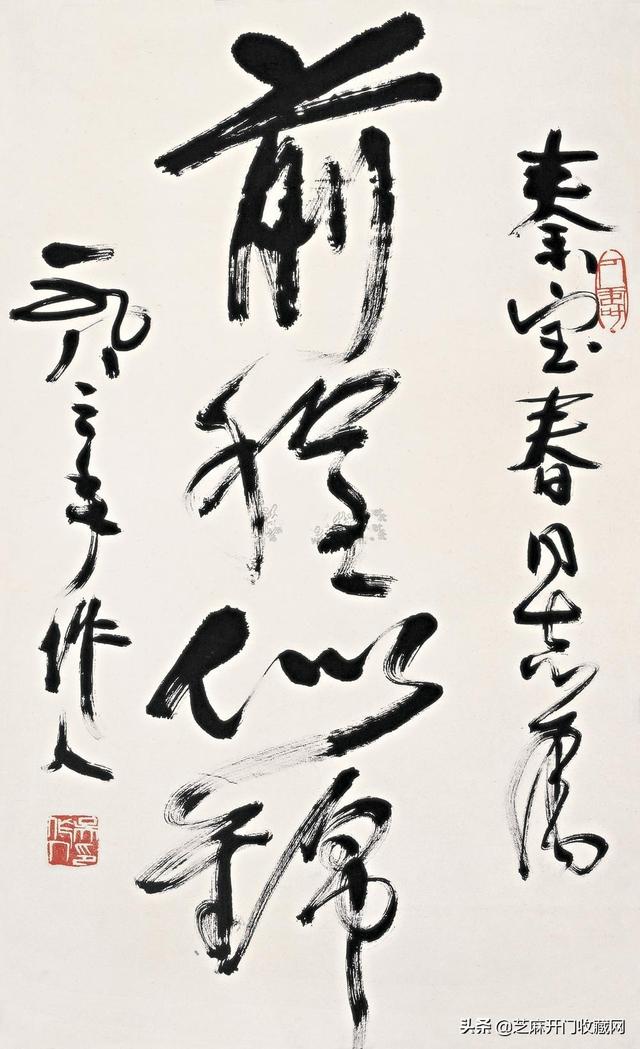 秦宝春同志属
前程似锦
一九八三年作人
头条 @芝麻开门收藏网